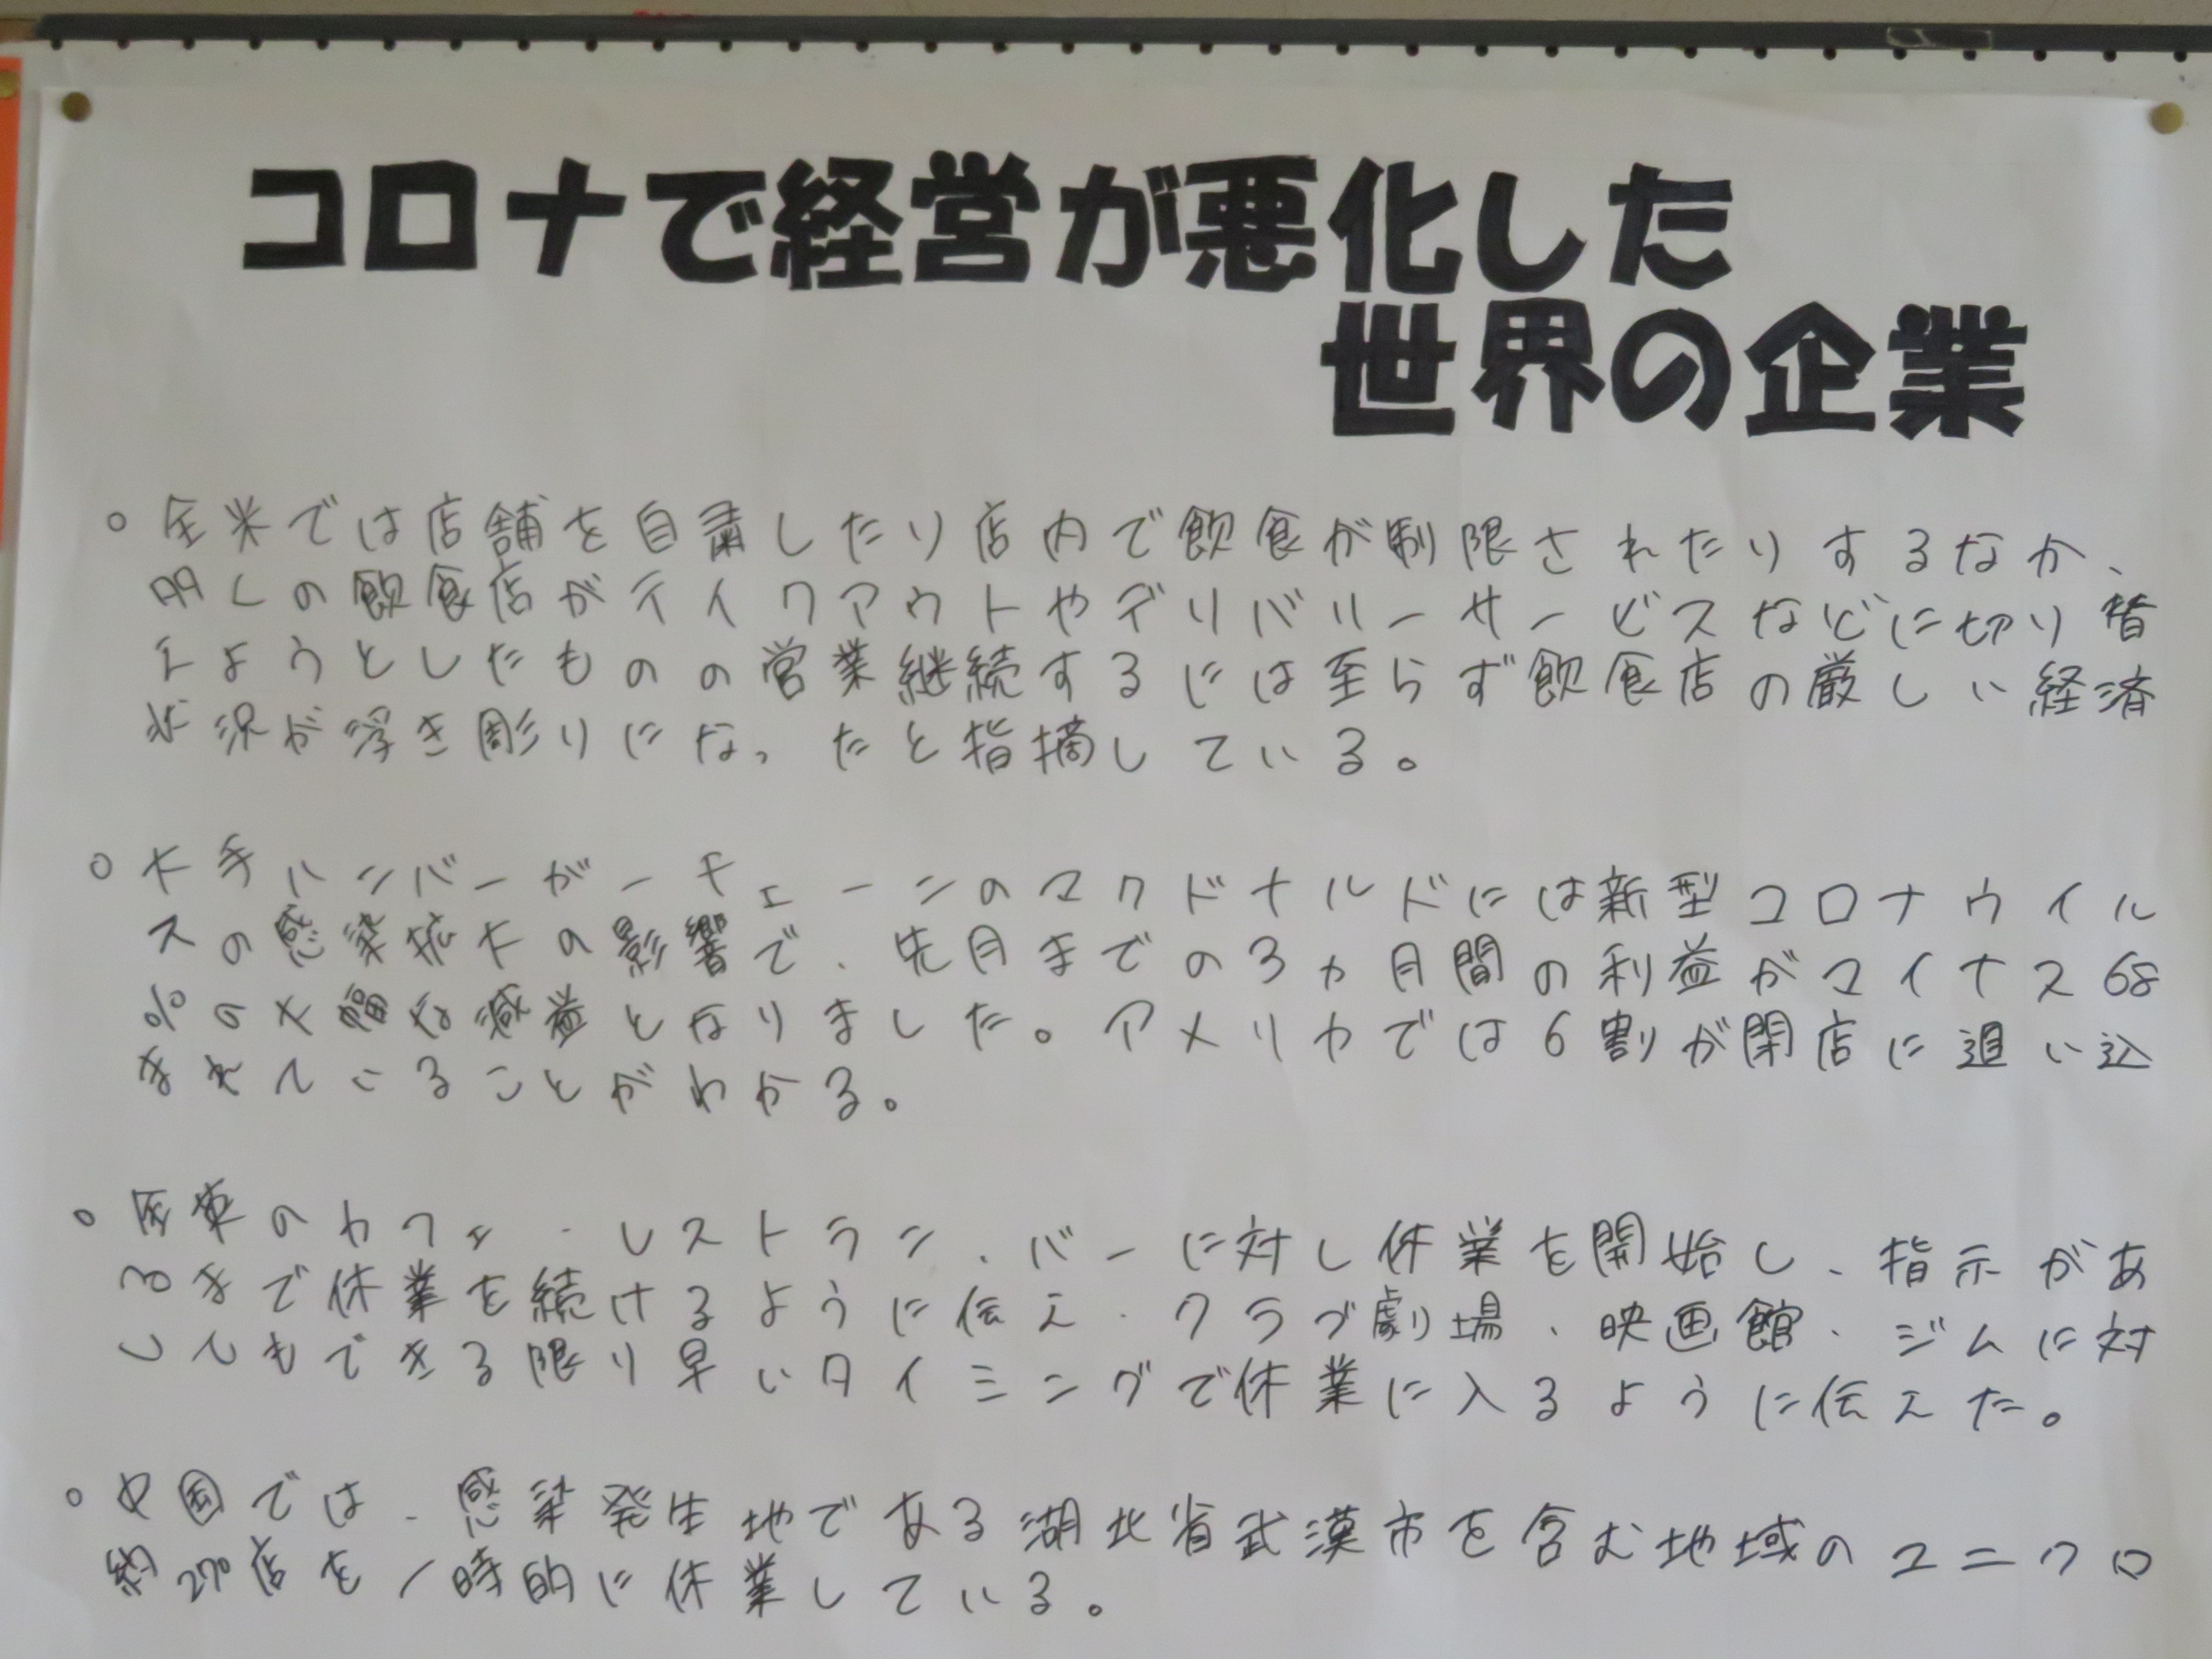 コロナで経営が悪化した
世界の企業
○全米では店舗を自粛したり店内で飲食が制限されたりするなか、
くの飲食店がテイクアウトやデリバリーサービスなどに切り替
えようとしたものの営業継続するには至らず飲食店の厳しい経済
状況が浮き彫りになったと指摘している。
○大手ハンバーガーチェーンのマクドナルドには新型コロナウイル
スの感染拡大の影響で、先月までの3ヵ月間の利益がマイナス68
%の大幅な減益となりました。アメリカでは6割が閉店に追い込
まれていることがわかる。
○のカフェ・レストラン、バーに対し休業を開始し、指示があ
るまで休業を続けるように伝え、クラブ劇場、映画館、ジムに対
してもできる限り早いタイミングで休業に入るように伝えた。
○中国では、感染発生地である湖北省武漢市を含む地域のユニクロ
約270店を一時的に休業している。